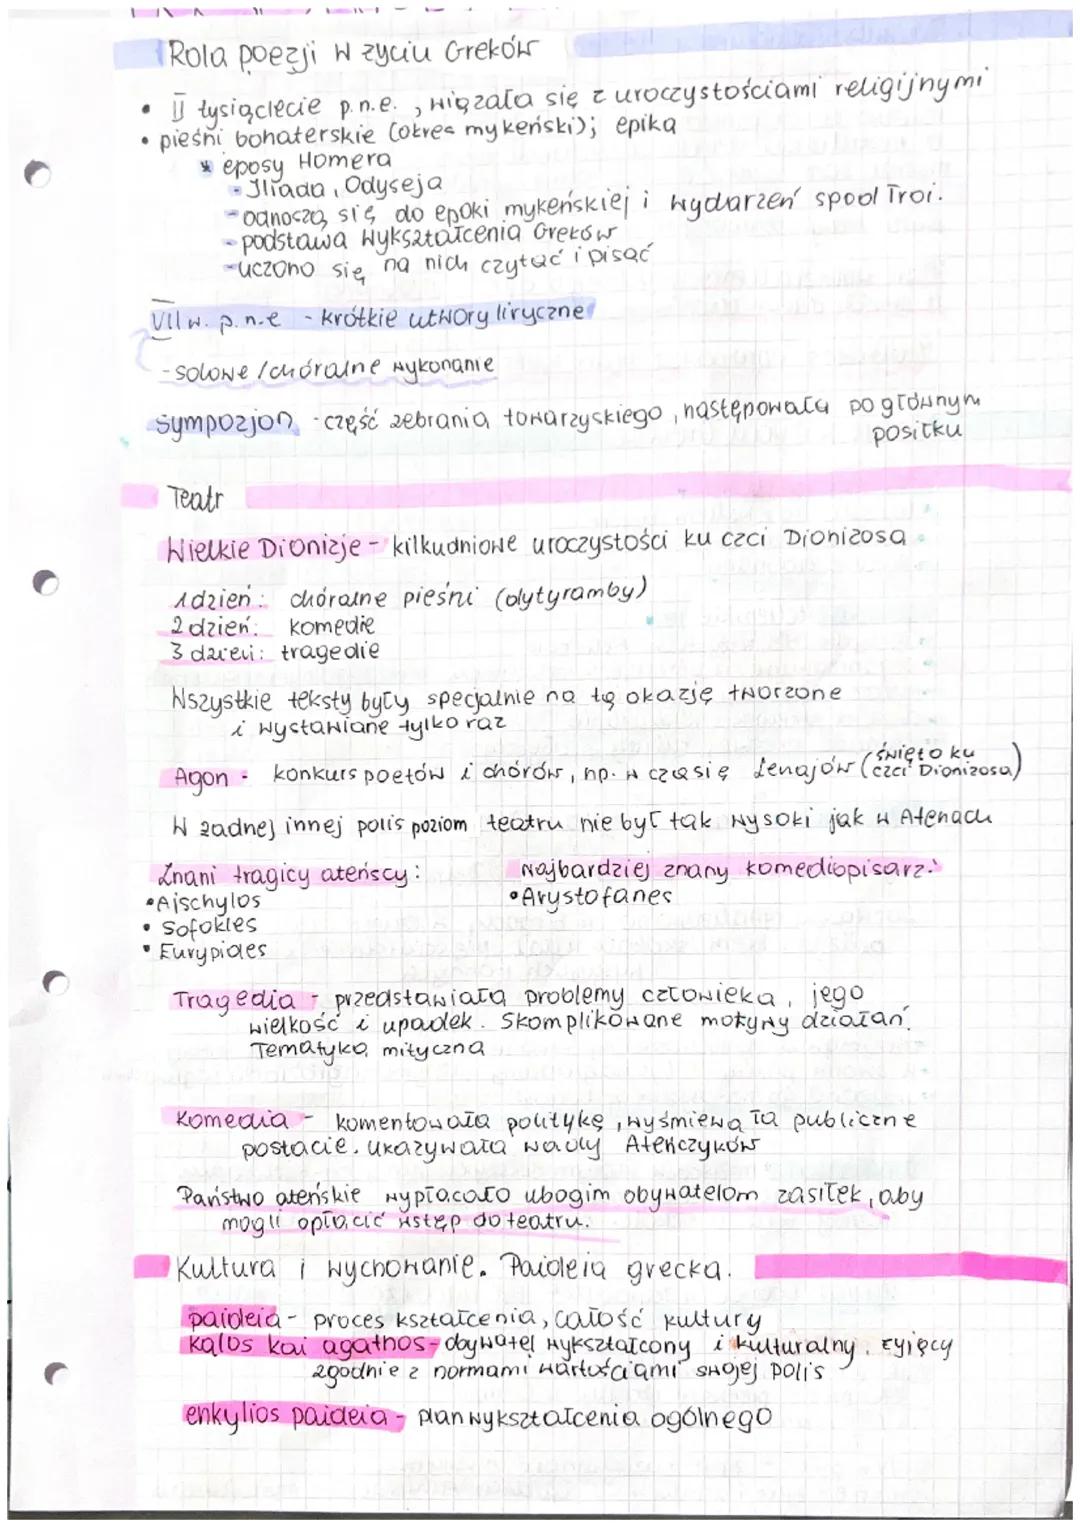 Rola poezji w życiu Greków
• II tysiąclecie p.n.e. , wiązała się z uroczystościami religijnymi
• pieśni bohaterskie (okres mykeński); epika
* eposy Homera
- Iliada, Odyseja
- odnoszą się do epoki mykeńskiej i wydarzeń spod Troi.
- podstawa wykształcenia Greków
- uczono się na nich czytać i pisać
VII w. p.n.e - krótkie utwory liryczne
- solowe / chóralne wykonanie
sympozjon - część zebrania towarzyskiego , następowała po głównym
posiłku
Teatr
Wielkie Dionizje - kilkudniowe uroczystości ku czci Dionizosa
1 dzień: chóralne pieśni (dytyramby)
2 dzień: komedie
3 dzień: tragedie
Wszystkie teksty były specjalnie na tę okazję tworzone
i wystawiane tylko raz
Agon - konkurs poetów i chórów, np. w czasie Lenajów (święto ku
czci Dionizosa)
W żadnej innej polis poziom teatru nie był tak wysoki jak w Atenach
Znani tragicy ateńscy:
• Ajschylos
• Sofokles
• Eurypides
Najbardziej znany komediopisarz:
• Arystofanes
Tragedia - przedstawiała problemy człowieka, jego
wielkość i upadek. Skomplikowane motywy działań.
Tematyka mityczna
Komedia - komentowała politykę, wyśmiewała publiczne
postacie. ukazywała wady Ateńczyków
Państwo ateńskie wypłacało ubogim obywatelom zasiłek, aby
mogli opłacić wstęp do teatru.
Kultura i wychowanie. Paideia grecka.
paideia - proces kształcenia, całość kultury
kalos kai agathos - obywatel wykształcony i kulturalny, żyjący
zgodnie z normami wartościami swojej polis
enkylios paideia - plan wykształcenia ogólnego